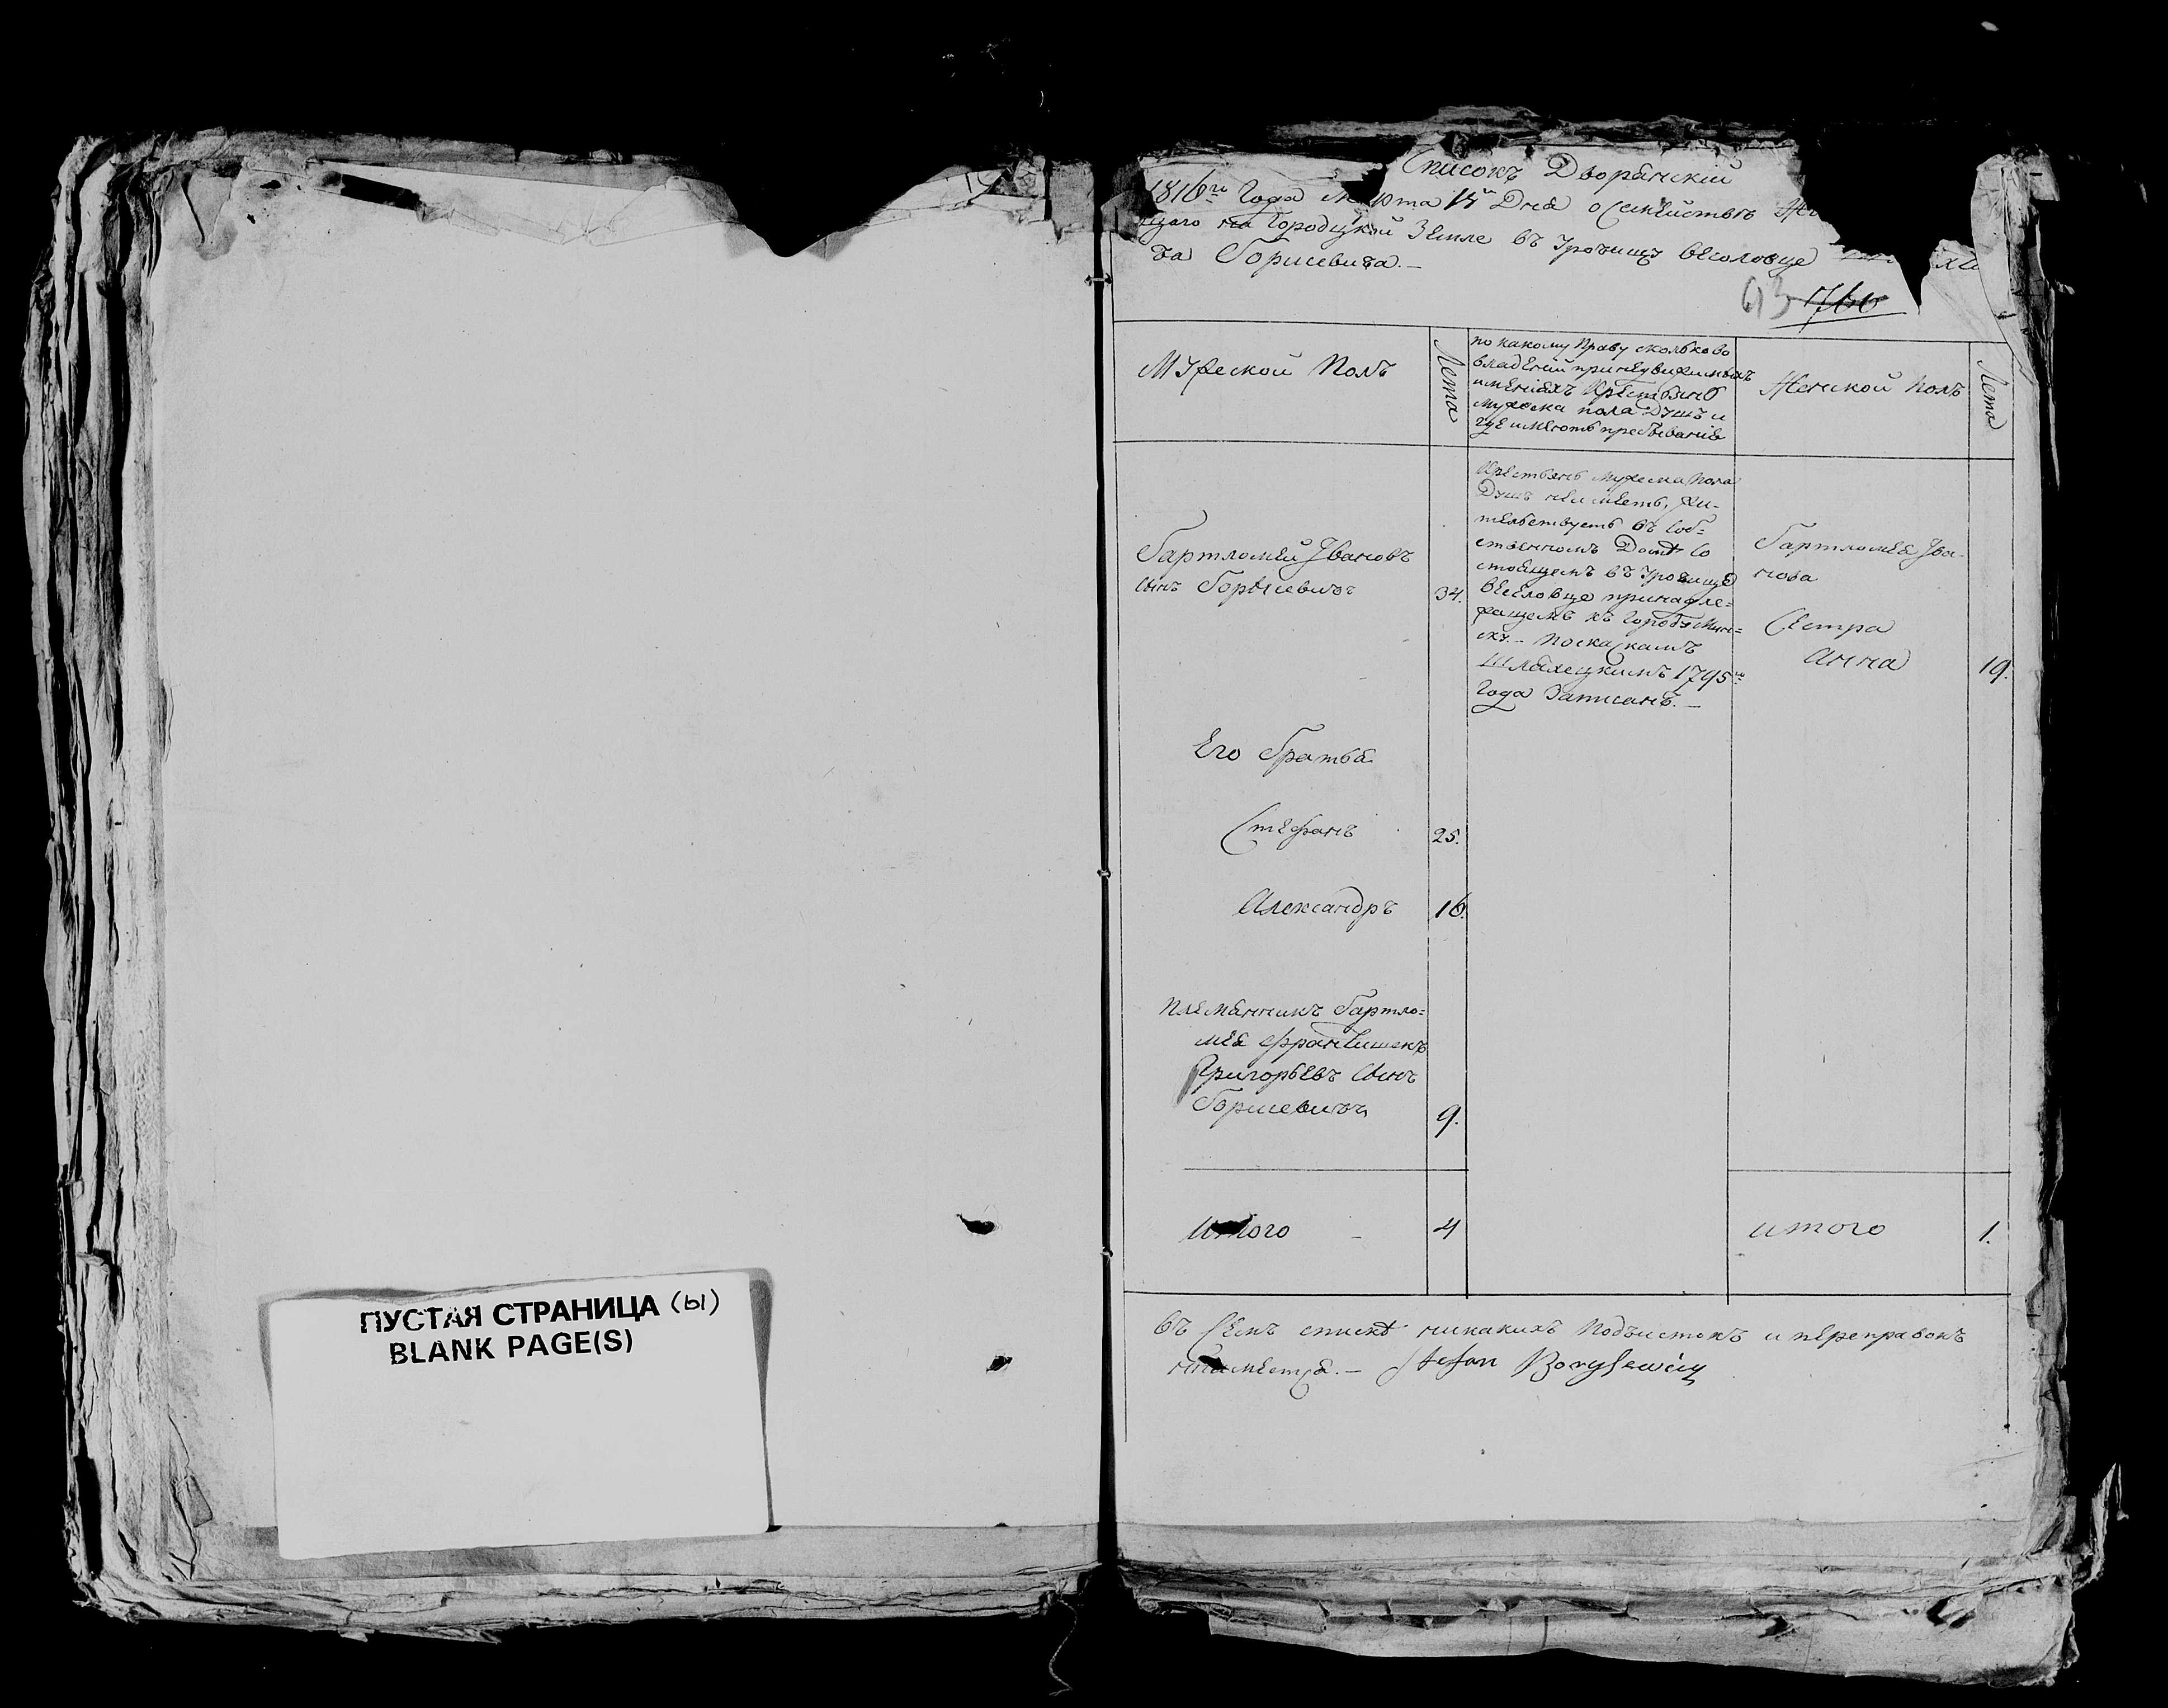 ПУСТАЯ СТРАНИЦА (ы)
BLANK PAGE(S)
Списокъ Дворянский
1816го Года Марта Дня о Семействе
щаго на Городцкой Земле въ Урочищу Веселовце
та Борисевича.—
613 1760
Мужеской Полъ
Лета
по какому Праву сколково
владений принедвижимыхъ
имениахъ Крестьянъ
мужеска пола Душъ и
где имеютъ пребывание
Женской Полъ
Лета
Бартломей Ивановъ
сынъ Борисевичъ
34.
Крестьянъ Мужеска Пола
Душъ неимеетъ, жи-
тельствуетъ въ Соб=
ственномъ Доме Со
стоящемъ въ Урочище
Веселовце принадле=
жащемъ къ Городу Мин=
ску.— По скаскамъ
Шляхецкимъ 1795го
Года Записанъ.—
Бартломея Ива-
нова
Сестра
Анна
19.
Его Братья
Стефанъ
25.
Александръ
16.
Племянникъ Бартло=
мея Францишекъ
Григорьевъ Сынъ
Борисевичъ
9.
Итого —
4
итого
1.
Въ Семъ списке никакихъ Подчистокъ и переправокъ
неиметса.— Stefan Borysewicz